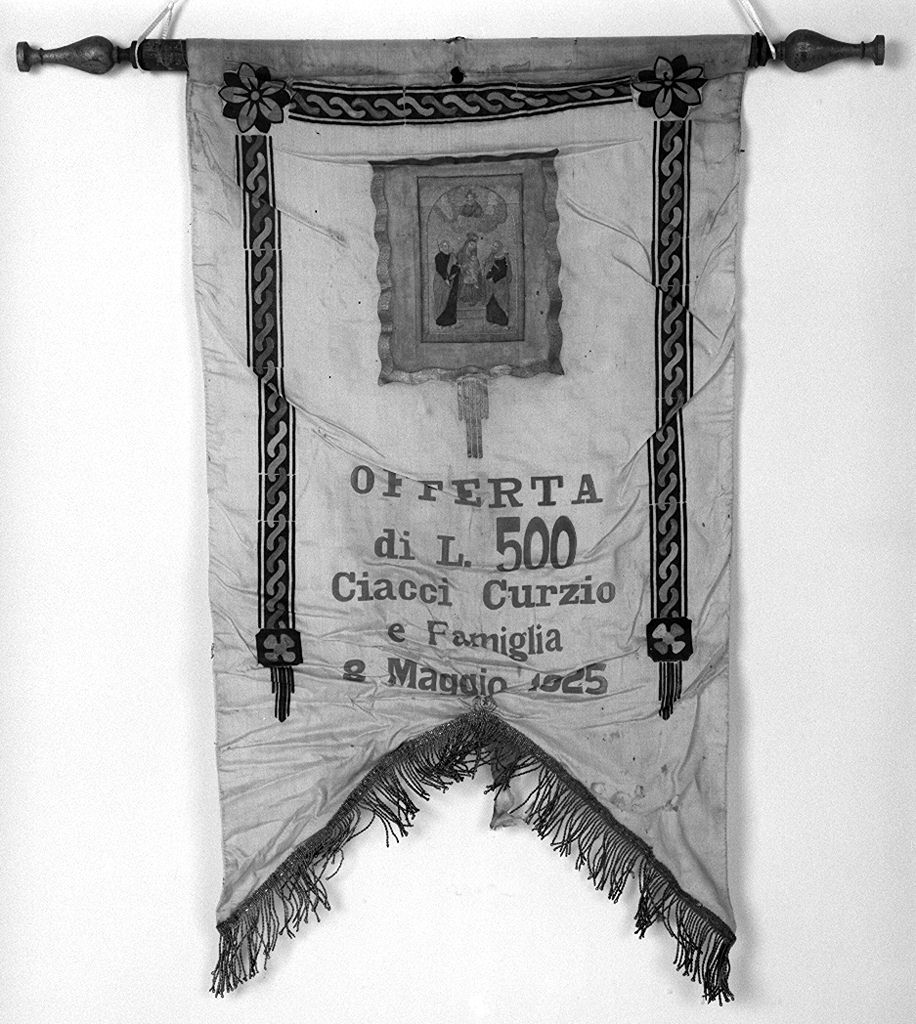 OFFERTA
di L. 500
Ciacci Curzio
e Famiglia
8 Maggio 1925